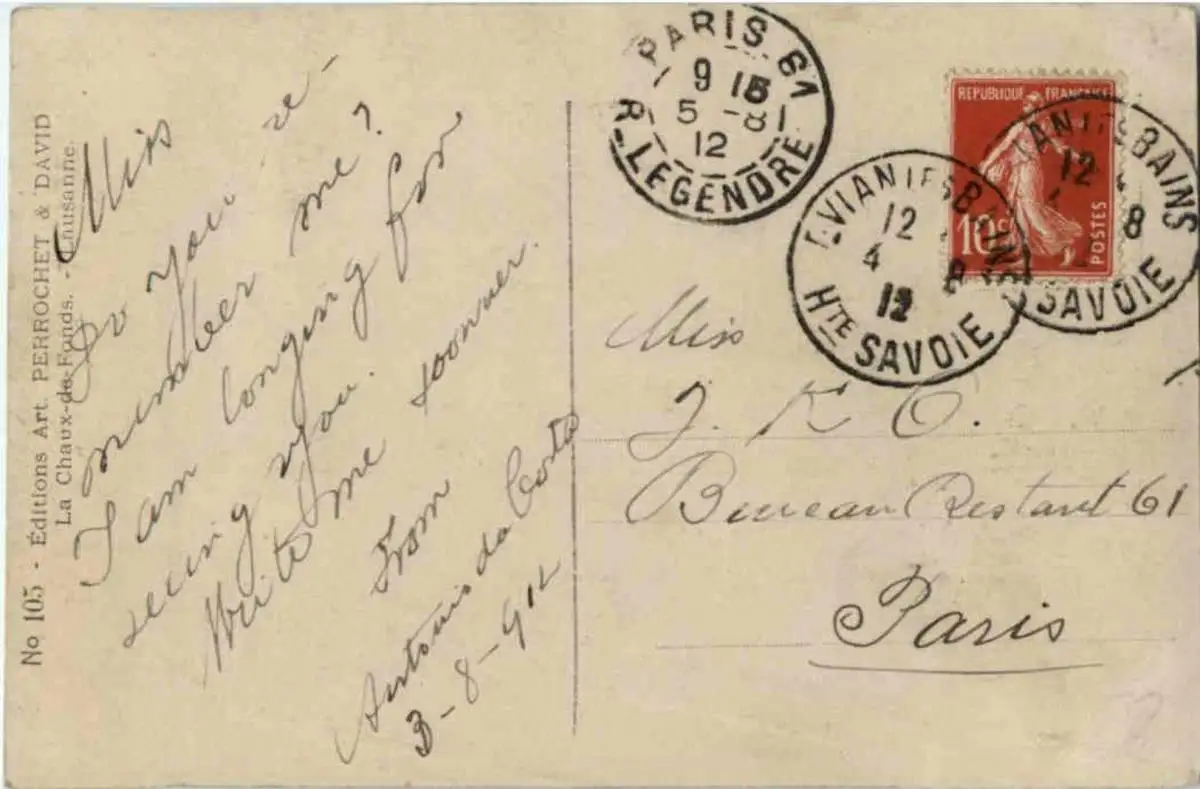 No 105 - Éditions Art. PERROCHET & DAVID
La Chaux-de-Fonds. - Lausanne.
Miss
Do You re-
member me?
I am longing for
seeing you.
Write me soonner.
From
Antonio da Costa
3-8-912
PARIS 61
9 15
5 - 8
12
R. LEGENDRE
EVIAN LES BAINS
12
4 8
12
HTE SAVOIE
REPUBLIQUE FRANÇAISE
10c
POSTES
EVIAN LES BAINS
12
8
SAVOIE
Miss
J. K O.
Bureau Restant 61
Paris